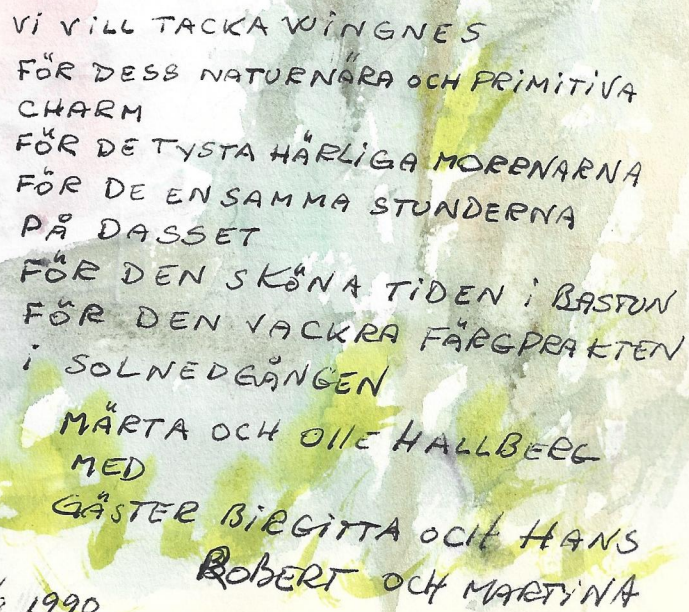 Vi VILL TACKA WINGNES
FÖR DESS NATURNÄRA OCH PRIMITIVA
CHARM
FÖR DE TYSTA HÄRLIGA MORRNARNA
FÖR DE ENSAMMA STUNDERNA
PÅ DASSET
FÖR DEN SKÖNA TIDEN i BASTUN
FÖR DEN VACKRA FÄRGPRAKTEN
i SOLNEDGÅNGEN
MÄRTA OCH OLLE HALLBERG
MED
GÄSTER BIRGITTA OCH HANS
ROBERT OCH MARTINA
1990